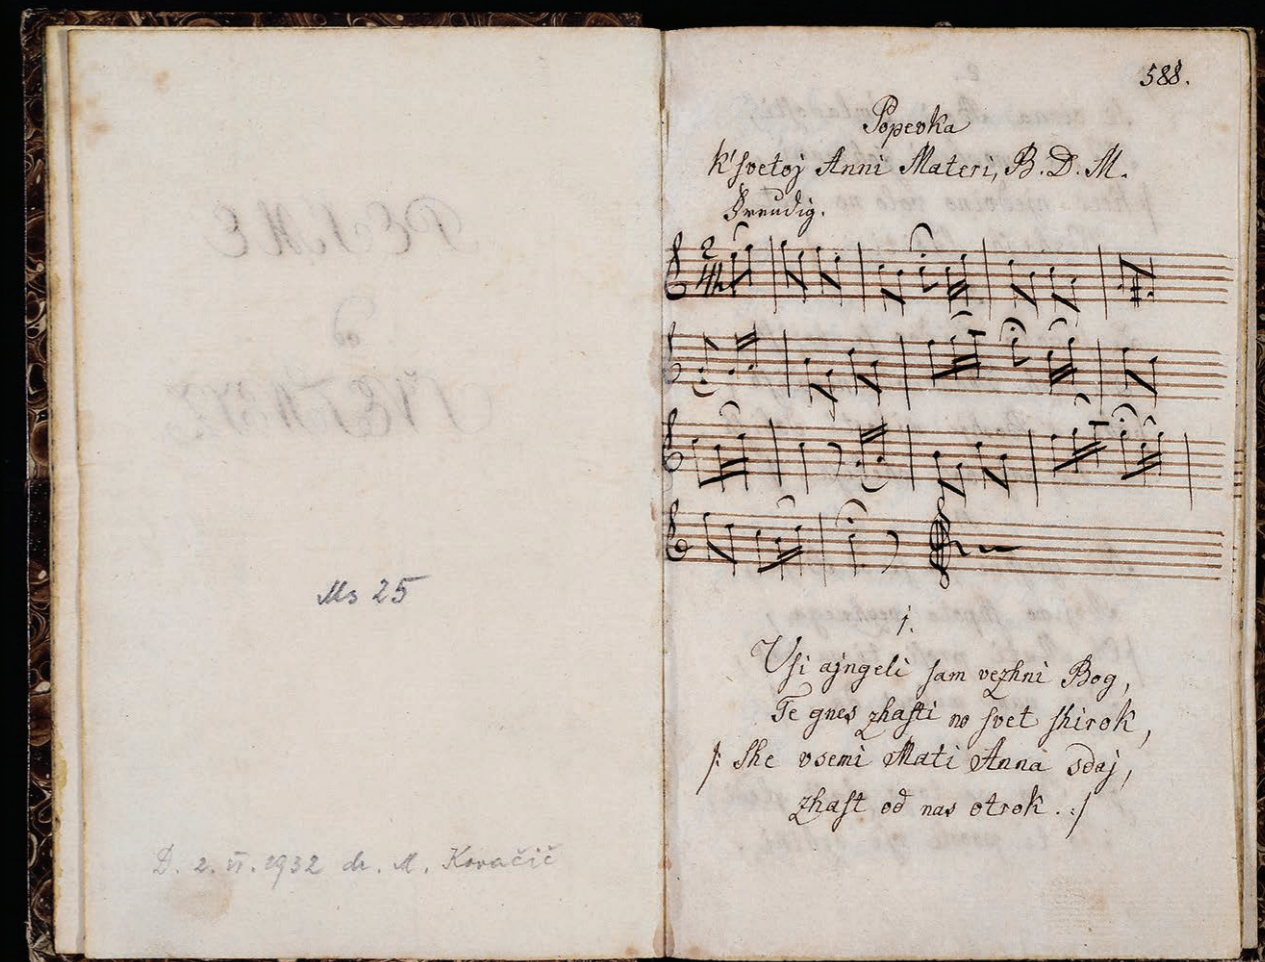 Ms 25
D. 2. VI. 1932 dr. M. Kovačič
588.
Popevka
k' ſvetoj Anni Materi, B. D. M.
Freudig.
2
4
1.
Vſi ajngeli ſam vezhni Bog,
Te gnes zhaſti no ſvet ſhirok,
/: She vsemi Mati Anna sdaj,
zhaſt od nas otrok. :/